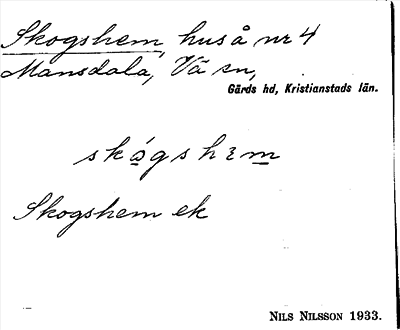 Skogshem, hus å nr 4
Mansdala, Vä sn,
Gärds hd, Kristianstads län.
skógshɛm
Skogshem ek
NILS NILSSON 1933.